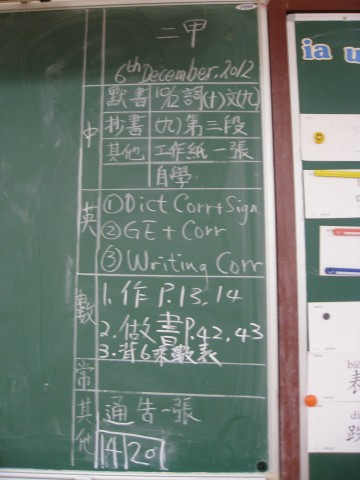 二甲
6th December, 2012
中 默書 10/12 詞(十)文(九)
抄書 (九)第三段
其他 工作紙一張
自學
英 ①Dict Corr+Sign
②GE + Corr
③Writing Corr
數 1.作 P.13, 14
2.做書P.42, 43
3.背6乘數表
常
其他 通告一張
14 20
ia u